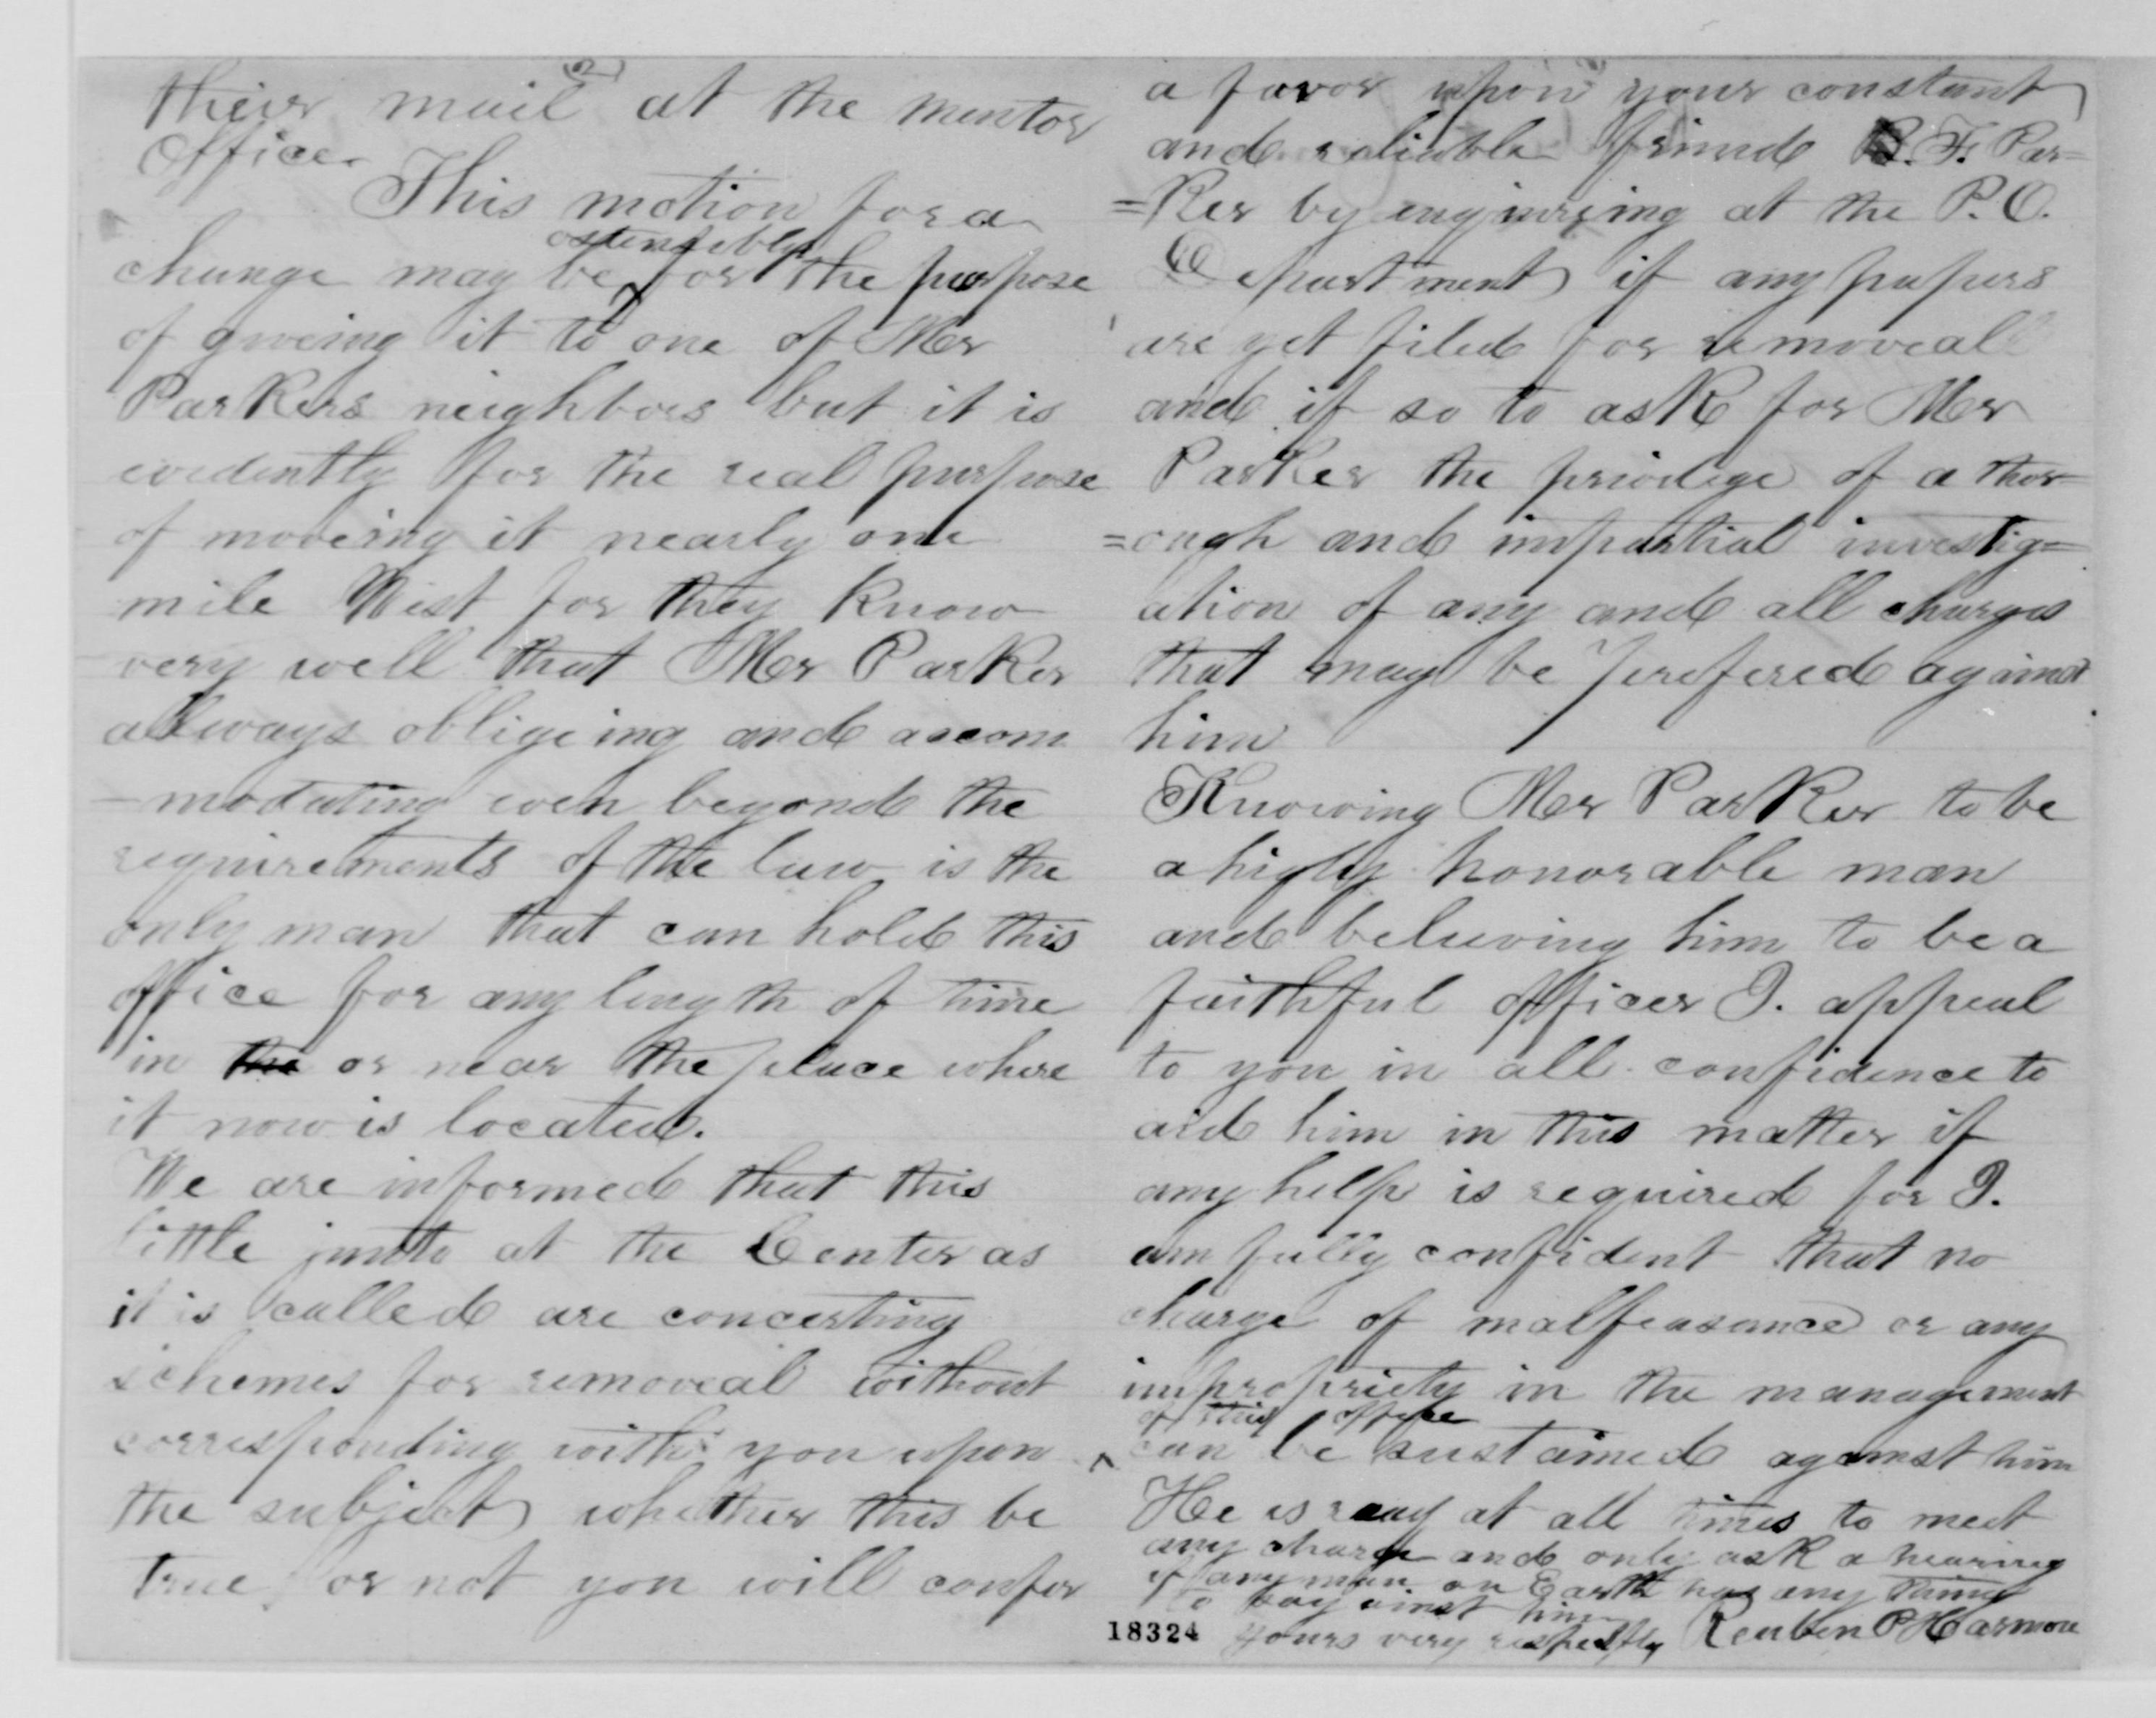 (2)
their mail at the mentor
Office.
This motion for a
ostensibly
change may be for the purpose
of giveing it to one of Mr
Parkers neighbors but it is
evidently for the real purpose
of moveing it nearly one
mile West for they know
very well that Mr Parker
allways obligeing and accom
-modating even beyond the
requirements of the law is the
only man that can hold this
office for any length of time
in the or near the place where
it now is located.
We are informed that this
little junto at the Center as
it is called are concerting
schemes for removeal without
corresponding with you upon
the subject whether this be
true or not you will confer
a favor upon your constant
and reliable friend B. F. Par=
=ker by enquireing at the P.O.
Department if any papers
are yet filed for removeal
and if so to ask for Mr
Parker the privilege of a thor=
=ough and impartial investig=
ation of any and all charges
that may be prefered against
him
Knowing Mr Parker to be
a highly honorable man
and believing him to be a
faithful officer I. appeal
to you in all confidence to
aid him in this matter if
any help is required for I.
am fully confident that no
charge of malfeasance or any
impropriety in the management
of this office
can be sustained against him
He is ready at all times to meet
any charge and only ask a hearing
if any man on Earth has any thing
to say against him
18324 yours very respectfly Reuben P Harmon